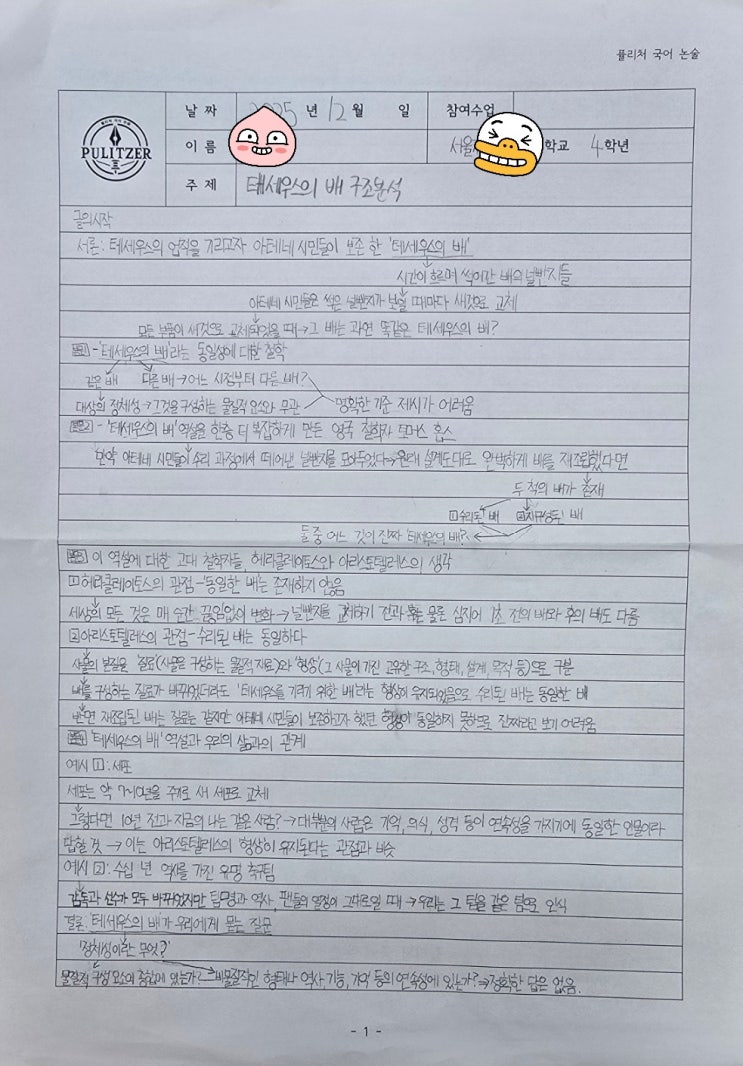 퓰리처 국어 논술
PULITZER
날 짜 2025 년 12 월 일 참여수업
이 름 서울 학교 4 학년
주 제 테세우스의 배 구조분석
글의시작
서론: 테세우스의 업적을 기리고자 아테네 시민들이 보존 한 '테세우스의 배'
시간이 흐르며 썩어간 배의 널빤지들
아테네 시민들은 썩은 널빤지가 보일 때마다 새것으로 교체
모든 부품이 새것으로 교체되었을 때→그 배는 과연 똑같은 테세우스의 배?
본론1 - '테세우스의 배'라는 동일성에 대한 철학
같은 배 다른 배→어느 시점부터 다른 배?
대상의 정체성→그것을 구성하는 물질적 요소와 무관 명확한 기준 제시가 어려움
본론2 - '테세우스의 배' 역설을 한층 더 복잡하게 만든 영국 철학자 토머스 홉스
만약 아테네 시민들이 수리 과정에서 떼어낸 널빤지를 모아두었다→원래 설계도대로 완벽하게 배를 재조립했다면
두 척의 배가 존재
1 수리된 배 2 재구성된 배
둘 중 어느 것이 진짜 '테세우스의 배'?
본론3 이 역설에 대한 고대 철학자들, 헤라클레이토스와 아리스토텔레스의 생각
1 헤라클레이토스의 관점-동일한 배는 존재하지 않음
세상의 모든 것은 매 순간 끊임없이 변화→널빤지를 교체하기 전과 후는 물론 심지어 1초 전의 배와 후의 배도 다름
2 아리스토텔레스의 관점-수리된 배는 동일하다
사물의 본질을 '질료'(사물을 구성하는 물질적 재료)와 '형상'(그 사물이 가진 고유한 구조, 형태, 설계, 목적 등)으로 구분
배를 구성하는 질료가 바뀌었더라도 '테세우스를 기리기 위한 배'라는 형상이 유지되었음으로 수리된 배는 동일한 배
반면 재조립된 배는 질료는 같지만 아테네 시민들이 보존하고자 했던 형상이 동일하지 못하므로 진짜라고 보기 어려움
본론4 '테세우스의 배' 역설과 우리의 삶과의 관계
예시 1 : 세포
세포는 약 7~10년을 주기로 새 세포로 교체
그렇다면 10년 전과 지금의 나는 같은 사람?→대부분의 사람은 기억, 의식, 성격 등이 연속성을 가지기에 동일한 인물이라
답할 것 → 이는 아리스토텔레스의 형상이 유지된다는 관점과 비슷
예시 2 : 수십 년 역사를 가진 유명 축구팀
감독과 선수가 모두 바뀌었지만 팀명과 역사, 팬들의 열정이 그대로일 때→우리는 그 팀을 같은 팀으로 인식
결론: '테세우스의 배가 우리에게 묻는 질문
'정체성이란 무엇?'
물질적 구성 요소의 총합에 있는가?→비물질적인 형태나 역사, 기능, 기억 등의 연속성에 있는가?→정확한 답은 없음.
- 1 -